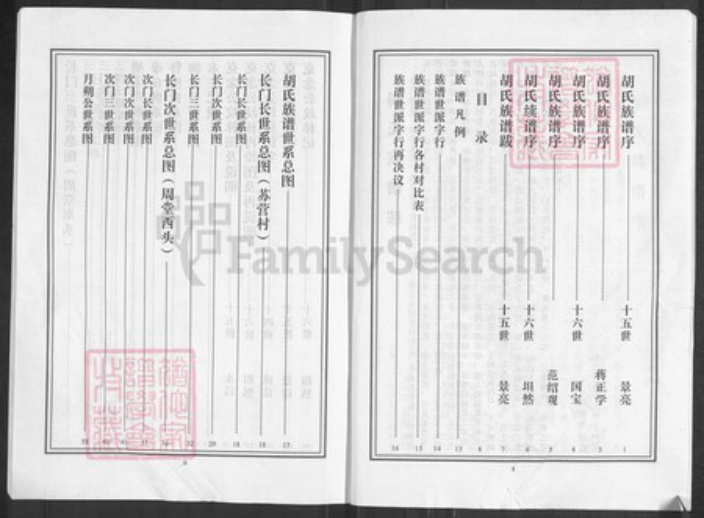 胡氏族谱序 十五世 景亮 1
胡氏族谱序 蒋正学 3
胡氏族谱序 十六世 国宝 4
胡氏族谱序 范绍观 5
胡氏续谱序 十六世 坦然 6
胡氏族谱跋 十五世 景亮 7
目录 8
族谱凡例 13
族谱世派字行 14
族谱世派字行各村对比表 15
族谱世派字行再决议 16
胡氏族谱世系总图
长门长世系总图(苏营村) 18
长门长世系图 18
长门次世系图 29
长门三世系图 32
长门次世系总图(周堂西头)
次门长世系图 37
次门次世系图
次门三世系图
月朔公世系图
FamilySearch